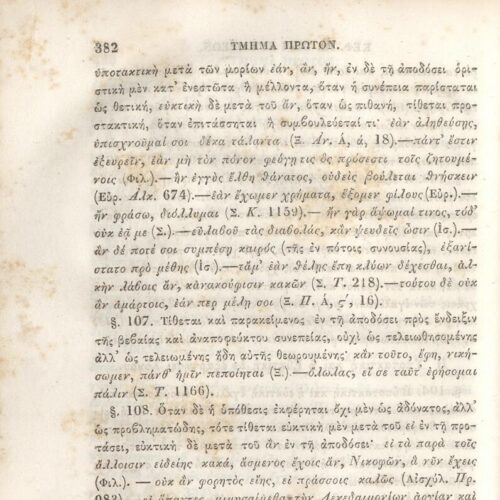 382 ΤΜΗΜΑ ΠΡΩΤΟΝ.
ὑποτακτικὴ μετὰ τῶν μορίων ἐάν, ἄν, ἤν, ἐν δὲ τῇ ἀποδόσει ὁρι-
στικὴ μὲν κατ' ἐνεστῶτα ἢ μέλλοντα, ὅταν ἡ συνέπεια παρίσταται
ὡς θετική, εὐκτικὴ δὲ μετὰ τοῦ ἄν, ὅταν ὡς πιθανή, τίθεται προ-
στακτική, ὅταν ἐπιτάσσηται ἢ συμβουλεύεταί τι· ἐὰν ἀληθεύσῃς,
ὑπισχνοῦμαί σοι δέκα τάλαντα (Ξ. Ἀν. Ά, ά, 18).—πάντ' ἔστιν
ἐξευρεῖν, ἐὰν μὴ τὸν πόνον φεύγῃ τις ὃς πρόσεστι τοῖς ζητουμέ-
νοις (Φιλ.).—ἢν ἐγγὺς ἔλθῃ θάνατος, οὐδεὶς βούλεται θνήσκειν
(Εὐρ. Ἀλκ. 674).—ἐὰν ἔχωμεν χρήματα, ἕξομεν φίλους (Εὐρ.).—
ἢν φράσω, διόλλυμαι (Σ. Κ. 1159).—ἢν γὰρ ἅψωμαί τινος, τόδ'
οὐκ ἐᾷ με (Σ.).—εὐλαβοῦ τὰς διαβολάς, κἂν ψευδεῖς ὦσιν (Ἰσ.).—
ἂν δέ ποτέ σοι συμπέσῃ καιρός (τῆς ἐν πότοις συνουσίας), ἐξανί-
στατο πρὸ μέθης (Ἰσ.).—τἄμ' ἐὰν θέλῃς ἔπη κλύων δέχεσθαι, ἀλ-
κὴν λάβοις ἂν, κἀνακούφισιν κακῶν (Σ. Τ. 218).—τούτου δὲ οὐκ
ἂν ἁμάρτοις, ἐάν περ μέλῃ σοι (Ξ. Π. Ά, ς', 16).
§. 107. Τίθεται καὶ παρακείμενος ἐν τῇ ἀποδόσει πρὸς ἔνδειξιν
τῆς βεβαίας καὶ ἀναποφεύκτου συνεπείας, οὐχὶ ὡς τελειωθησομένης
ἀλλ' ὡς τελειωμένης ἤδη αὐτῆς θεωρουμένης· κἂν τοῦτο, ἔφη, νικήσ-
ωμεν, πάνθ' ἡμῖν πεποίηται (Ξ.).—ὄλωλας, εἴ σε ταῦτ' ἐρήσομαι
πάλιν (Σ. Τ. 1166).
§. 108. Ὅταν δὲ ἡ ὑπόθεσις ἐκφέρηται ὄχι μὲν ὡς ἀδύνατος, ἀλλ'
ὡς προβληματώδης, τότε τίθεται εὐκτικὴ μὲν μετὰ τοῦ εἰ ἐν τῇ προ-
τάσει, εὐκτικὴ δὲ μετὰ τοῦ ἂν ἐν τῇ ἀποδόσει· εἰ τὰ παρὰ τοῖς
ἄλλοισιν εἰδείης κακά, ἄσμενος ἔχοις ἄν, Νικοφῶν, ἃ νῦν ἔχεις καὶ
(Φιλ.). — οὐκ ἂν φορητὸς εἴης, εἰ πράσσοις καλῶς (Αἰσχύλ. Πρ.